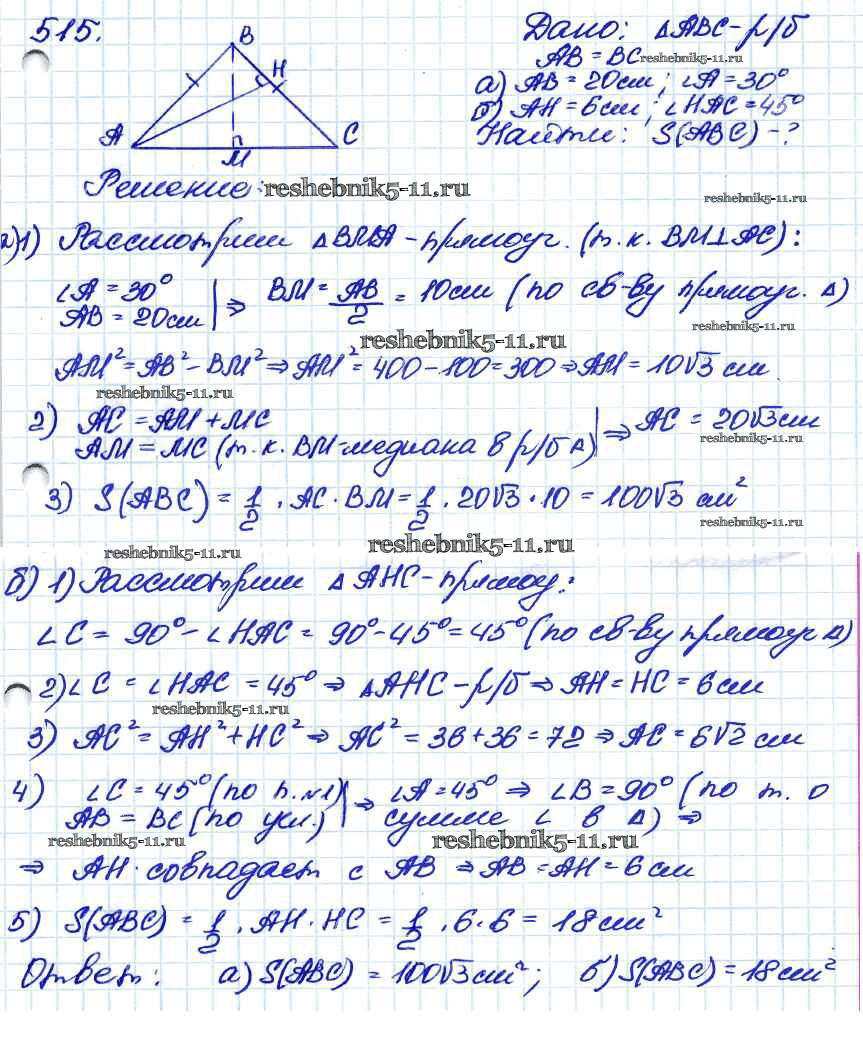 515.
B
H
A
C
M
Дано: △ABC - р/б
AB = BC reshebnik5-11.ru
а) AB = 20см; ∠A = 30°
б) AH = 6см; ∠HAC = 45°
Найти: S(ABC) - ?
Решение: reshebnik5-11.ru
reshebnik5-11.ru
а) 1) Рассмотрим △BMA - прямоуг. (т.к. BM⊥AC):
∠A = 30°
AB = 20см | ⇒ BM = AB/2 = 10см (по св-ву прямоуг. △)
reshebnik5-11.ru
reshebnik5-11.ru
AM² = AB² - BM² ⇒ AM² = 400 - 100 = 300 ⇒ AM = 10√3 см
reshebnik5-11.ru
2) AC = AM + MC
AM = MC (т.к. BM - медиана в р/б △) | ⇒ AC = 20√3см
reshebnik5-11.ru
3) S(ABC) = 1/2 · AC · BM = 1/2 · 20√3 · 10 = 100√3 см²
reshebnik5-11.ru
reshebnik5-11.ru
reshebnik5-11.ru
б) 1) Рассмотрим △AHC - прямоуг.:
∠C = 90° - ∠HAC = 90° - 45° = 45° (по св-ву прямоуг △)
2) ∠C = ∠HAC = 45° ⇒ △AHC - р/б ⇒ AH = HC = 6см
reshebnik5-11.ru
3) AC² = AH² + HC² ⇒ AC² = 36 + 36 = 72 ⇒ AC = 6√2 см
4) ∠C = 45° (по п.№1) | ⇒ ∠A = 45° ⇒ ∠B = 90° (по т. о
AB = BC (по усл.) | сумме ∠ в △) ⇒
reshebnik5-11.ru
reshebnik5-11.ru
⇒ AH совпадает с AB ⇒ AB = AH = 6см
5) S(ABC) = 1/2 · AH · HC = 1/2 · 6 · 6 = 18см²
Ответ: а) S(ABC) = 100√3см²; б) S(ABC) = 18см²